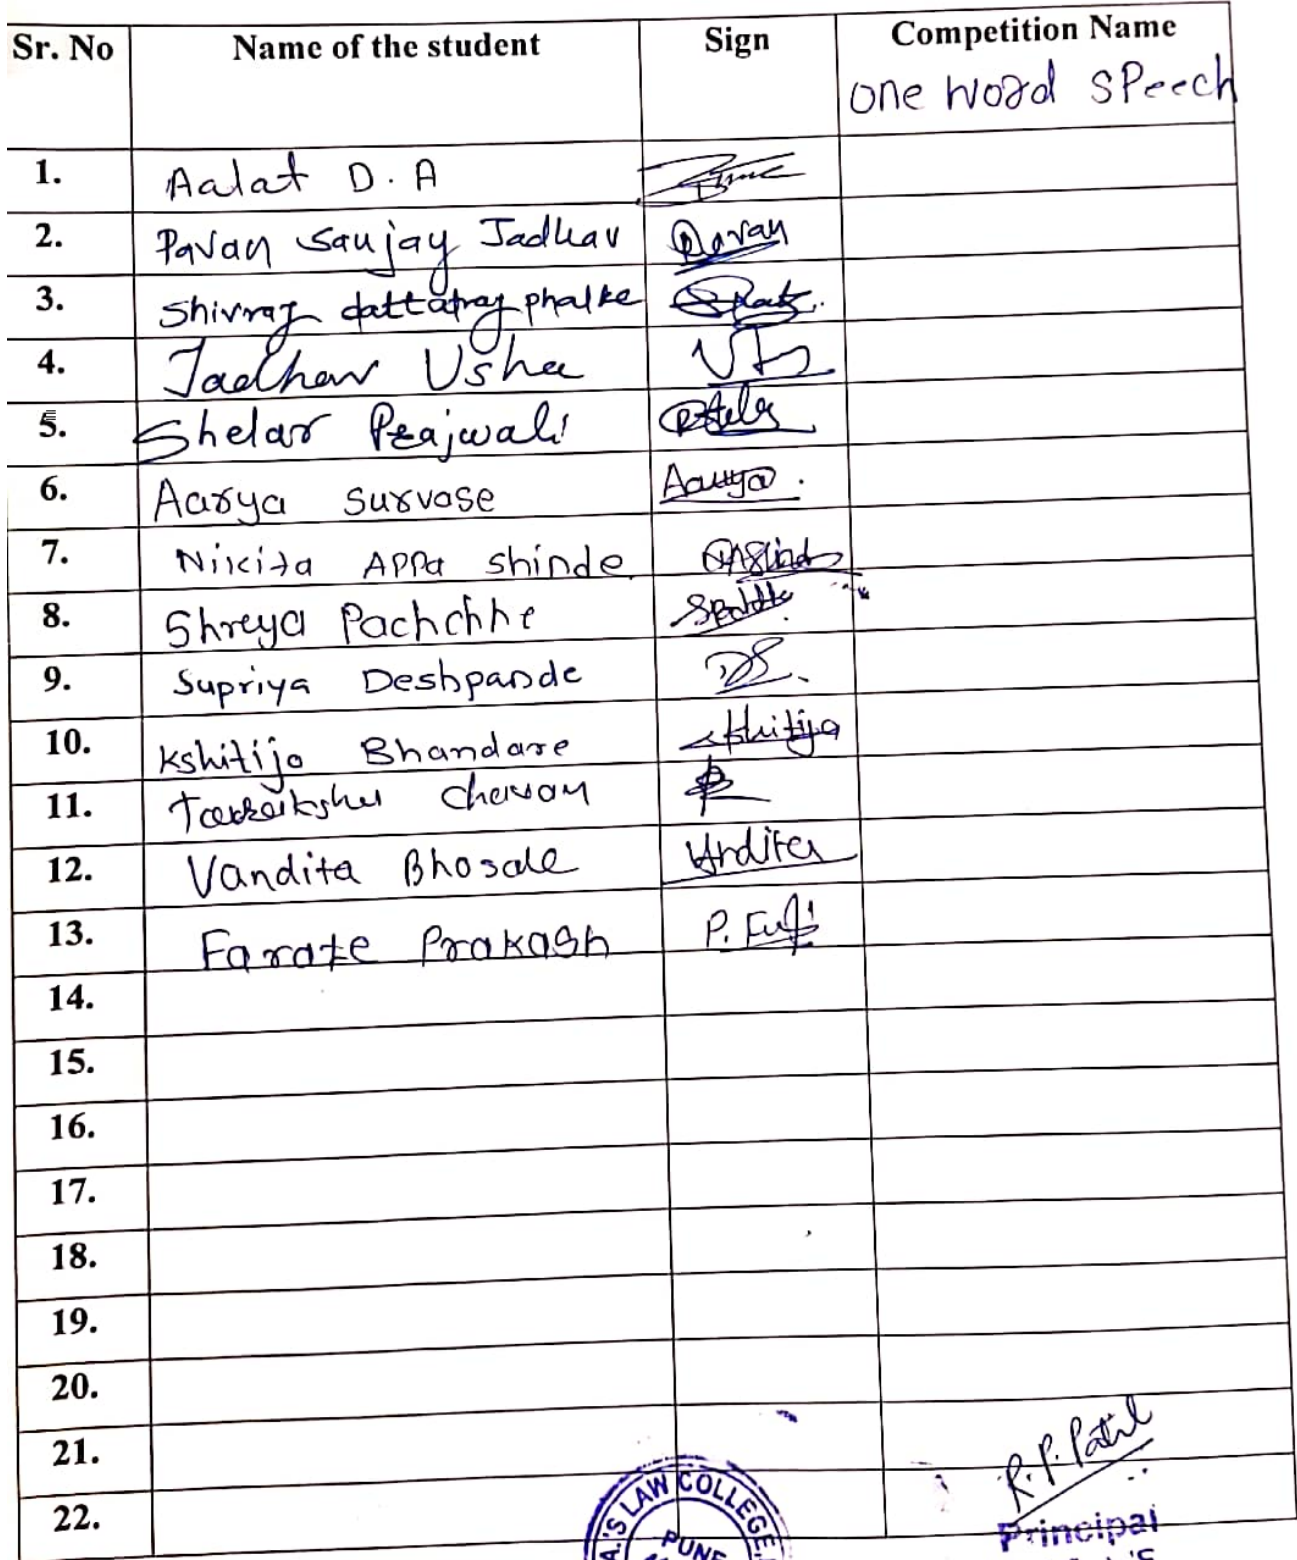 Sr. No Name of the student Sign Competition Name
One Word Speech
1. Aalat D. A
2. Pavan Sanjay Jadhav Pavan
3. Shivraj dattatray phalke
4. Jadhav Usha
5. Shelar Prajwali
6. Aarya Survase Aarya
7. Nikita Appa Shinde
8. Shreya Pachchhe
9. Supriya Deshpande DS.
10. Kshitija Bhandare Kshitija
11. Chavan
12. Vandita Bhosale Vandita
13. Farate Prakash P.
14.
15.
16.
17.
18.
19.
20.
21.
22.
R. P. Patil
A.'S LAW COLLEGE
PUNE
Principal